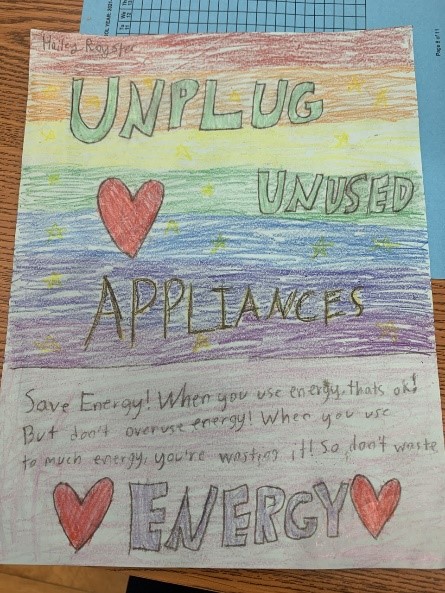 Hailey Royster
UNPLUG
UNUSED
APPLIANCES
Save Energy! When you use energy, thats ok!
But don't overuse energy! When you use
to much energy, you're wasting it! So, don't waste
ENERGY